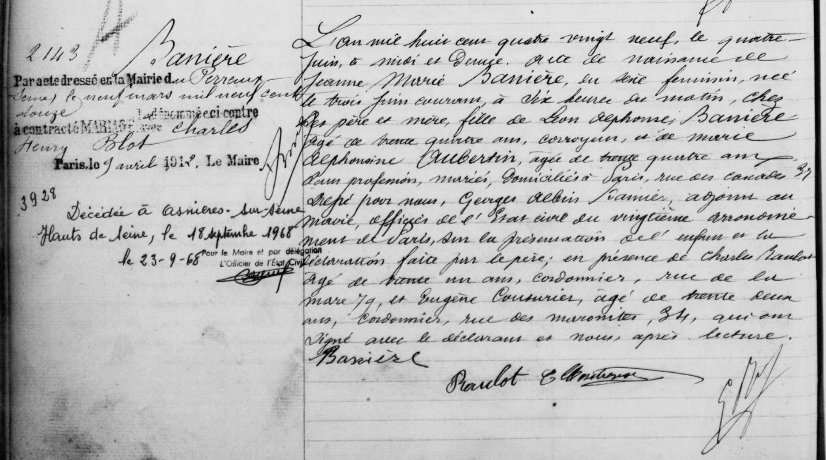 2143
Banière
Par acte dressé en la Mairie du Perreux
Seine, le neuf mars mil neuf cent
douze dénommée ci contre
à contracté MARIAGE avec Charles
Henry Blot
Paris, le 9 avril 1912. Le Maire
3928
Décédée à Asnières-sur-Seine
Hauts de Seine, le 18 septembre 1968
le 23-9-68 Pour le Maire et par délégation
L'Officier de l'État Civil
L'an mil huit cent quatre vingt neuf, le quatre
Juin, à midi et demie. Acte de naissance de
Jeanne Marie Banière, du sexe feminin, née
le trois Juin courant, à six heures du matin, chez
ses père et mère, fille de Léon Alphonse, Banière
âgé de trente quatre ans, corroyeur, et de Marie
Alphonsine Aubertin, agée de trente quatre ans
sans profession, mariés, domiciliés à Paris, rue des Cascades 37
Dressé par nous, Georges Albin adjoint au
Maire, officier de l'Etat civil du vingtième arrondisse-
ment de Paris, sur la présentation de l'enfant et la
déclaration faite par le père; en présence de Charles Raulot
âgé de trente un ans, cordonnier, rue de la
mare 79, et Eugène Couturier, âgé de trente deux
ans, cordonnier, rue des maronites, 34, qui ont
signé avec le déclarant et nous après lecture.
Banière
Raulot E Couturier